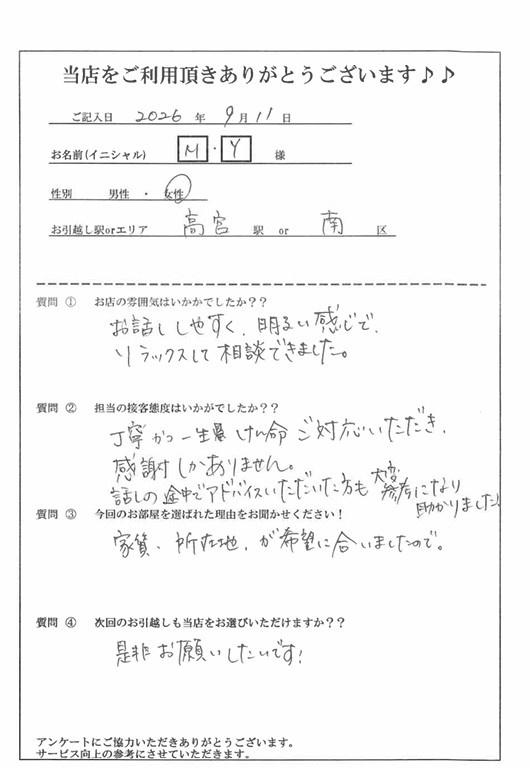 当店をご利用頂きありがとうございます♪♪
ご記入日 2026 年 9月 11 日
お名前(イニシャル) M ・ Y 様
性別 男性 ・ 女性
お引越し駅orエリア 高宮 駅 or 南 区
質問 ① お店の雰囲気はいかかでしたか？？
お話ししやすく、明るい感じで、
リラックスして相談できました。
質問 ② 担当の接客態度はいかがでしたか？？
丁寧かつ一生けん命ご対応いただき、
感謝しかありません。
話しの途中でアドバイスいただいた方も大変参考になり
助かりました！
質問 ③ 今回のお部屋を選ばれた理由をお聞かせください！
家賃、所在地、が希望に合いましたので。
質問 ④ 次回のお引越しも当店をお選びいただけますか？？
是非お願いしたいです！
アンケートにご協力いただきありがとうございます。
サービス向上の参考にさせていただきます。